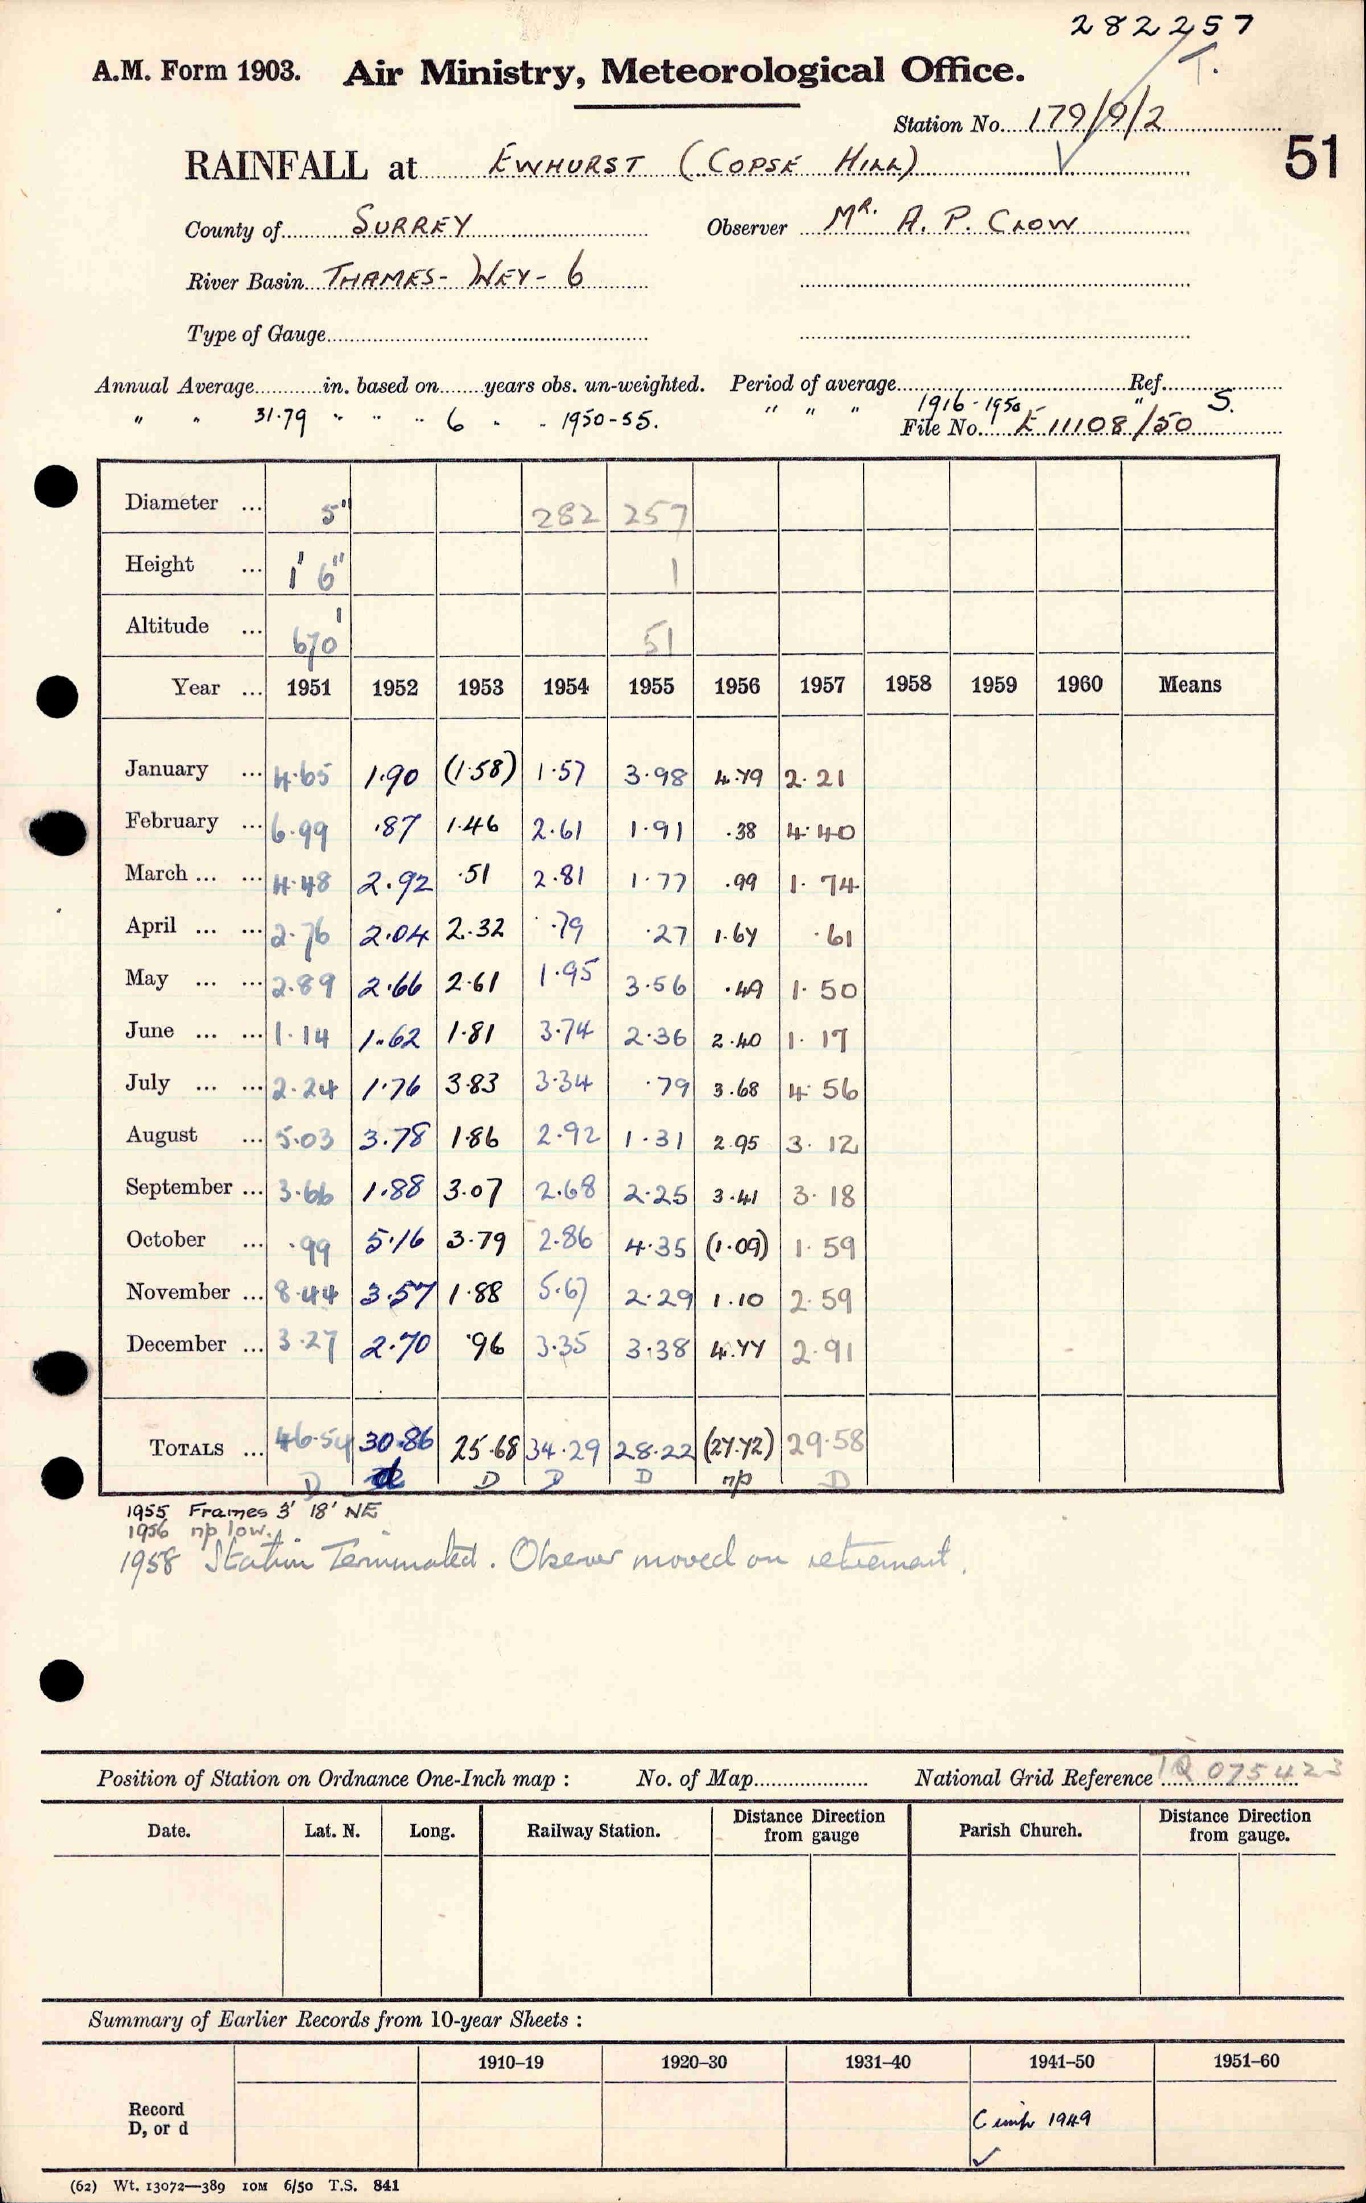 282257
T.
A.M. Form 1903. Air Ministry, Meteorological Office.
Station No. 179/9/2
51
RAINFALL at EWHURST (COPSE HILL)
County of SURREY Observer MR. A. P. CLOW
River Basin THAMES - WEY - 6
Type of Gauge
Annual Average in. based on years obs. un-weighted. Period of average Ref.
" " 31.79 " " " 6 " " 1950-55. " " " 1916-1950 " S.
File No. E 11108/50
Diameter ... 5" 282 257
Height ... 1' 6" 1
Altitude ... 670' 51
Year ... 1951 1952 1953 1954 1955 1956 1957 1958 1959 1960 Means
January ... 4.65 1.90 (1.58) 1.57 3.98 4.79 2.21
February ... 6.99 .87 1.46 2.61 1.91 .38 4.40
March ... ... 4.48 2.92 .51 2.81 1.77 .99 1.74
April ... ... 2.76 2.04 2.32 .79 .27 1.67 .61
May ... ... 2.89 2.66 2.61 1.95 3.56 .49 1.50
June ... ... 1.14 1.62 1.81 3.74 2.36 2.40 1.17
July ... ... 2.24 1.76 3.83 3.34 .79 3.68 4.56
August ... 5.03 3.78 1.86 2.92 1.31 2.95 3.12
September ... 3.66 1.88 3.07 2.68 2.25 3.41 3.18
October ... .99 5.16 3.79 2.86 4.35 (1.09) 1.59
November ... 8.44 3.57 1.88 5.67 2.29 1.10 2.59
December ... 3.27 2.70 .96 3.35 3.38 4.77 2.91
TOTALS ... 46.54 30.86 25.68 34.29 28.22 (27.72) 29.58
D D D D np D
1955 Frames 3' 18' NE
1956 np low.
1958 Station Terminated. Observer moved on retirement.
Position of Station on Ordnance One-Inch map : No. of Map National Grid Reference TQ 075423
Date. Lat. N. Long. Railway Station. Distance from Direction gauge Parish Church. Distance from Direction gauge.
Summary of Earlier Records from 10-year Sheets :
1910–19 1920–30 1931–40 1941–50 1951–60
Record
D, or d
1949
(62) Wt. 13072—389 10M 6/50 T.S. 841